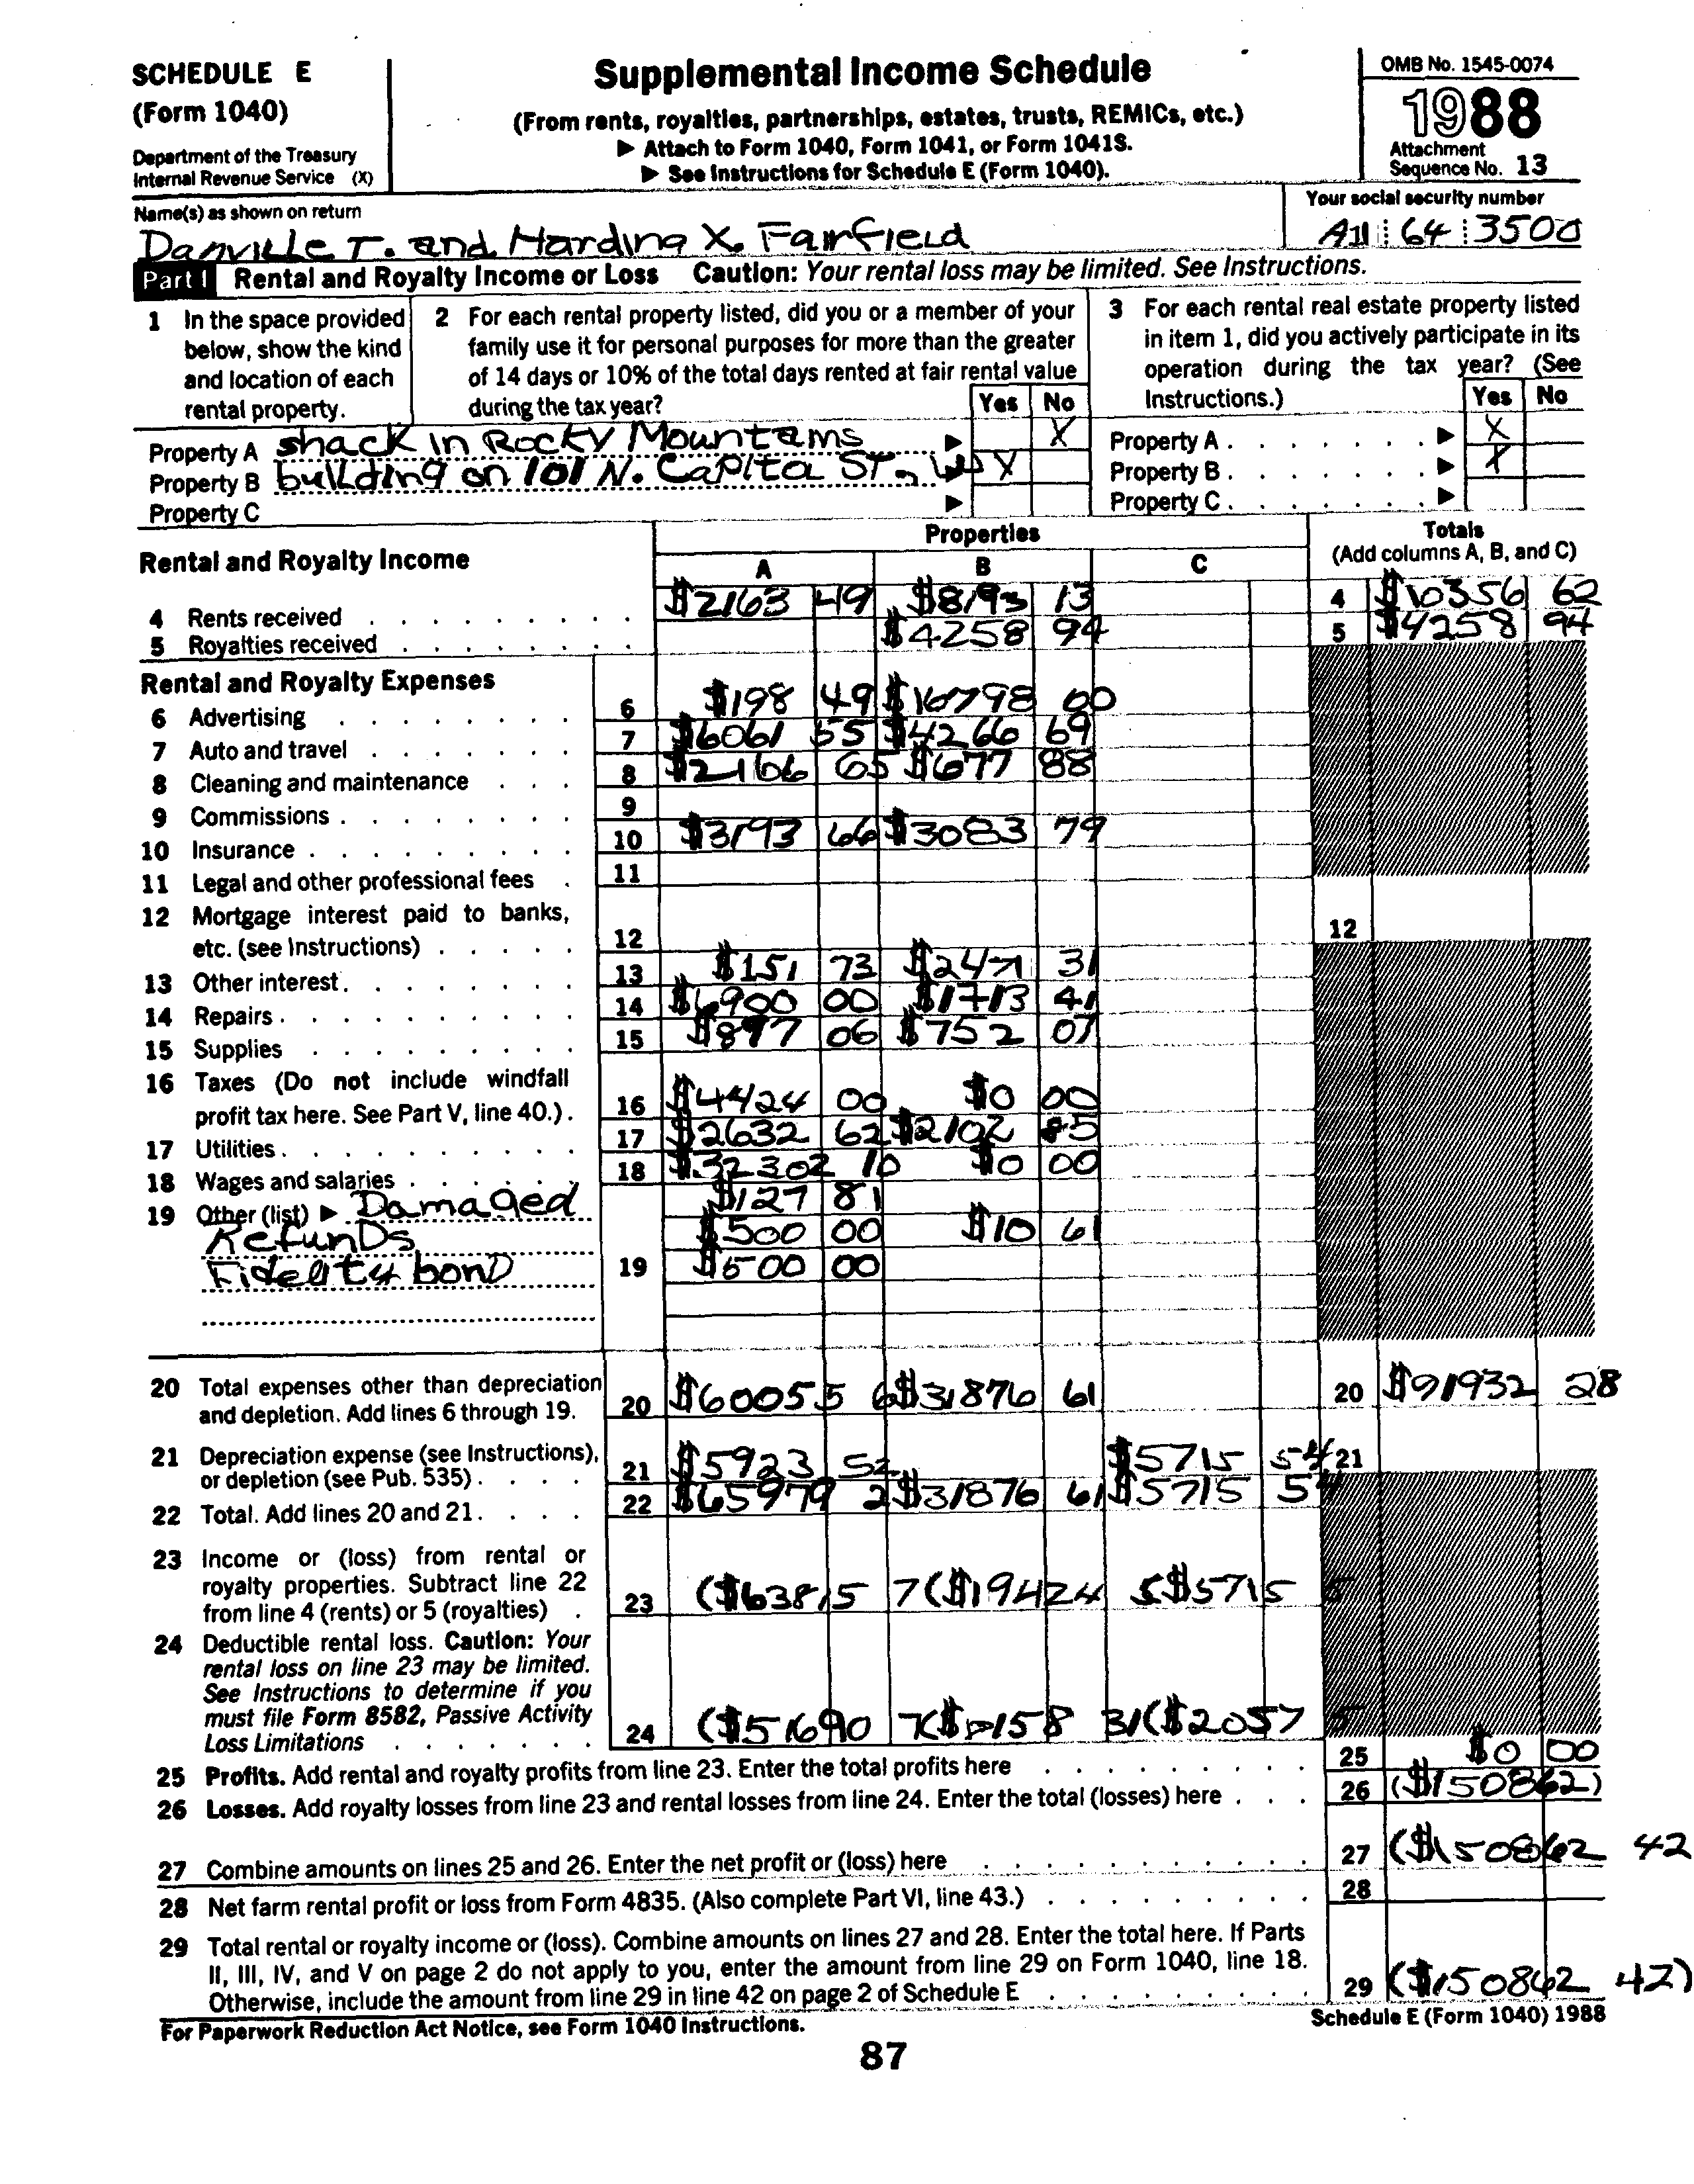 SCHEDULE E
(Form 1040)
Department of the Treasury
Internal Revenue Service (X)
Supplemental Income Schedule
(From rents, royalties, partnerships, estates, trusts, REMICs, etc.)
▶ Attach to Form 1040, Form 1041, or Form 1041S.
▶ See Instructions for Schedule E (Form 1040).
OMB No. 1545-0074
1988
Attachment
Sequence No. 13
Name(s) as shown on return
Danville T. and Harding X. Fairfield
Your social security number
64 3500
Part I Rental and Royalty Income or Loss Caution: Your rental loss may be limited. See Instructions.
1 In the space provided
below, show the kind
and location of each
rental property.
2 For each rental property listed, did you or a member of your
family use it for personal purposes for more than the greater
of 14 days or 10% of the total days rented at fair rental value
during the tax year? Yes No
3 For each rental real estate property listed
in item 1, did you actively participate in its
operation during the tax year? (See
Instructions.) Yes No
Property A shack in Rocky Mountains ▶ X
Property B building on 101 N. Capita ST., ▶ X
Property C ▶
Property A . . . . . . . ▶ X
Property B . . . . . . . ▶ X
Property C . . . . . . . ▶
Rental and Royalty Income
Properties
A B C
Totals
(Add columns A, B, and C)
4 Rents received $2163 49 $8193 13 4 $10356 62
5 Royalties received $4258 94 5 $4258 94
Rental and Royalty Expenses
6 Advertising 6 $198 49 $16798 00
7 Auto and travel 7 $6061 55 $4266 69
8 Cleaning and maintenance 8 $2166 65 $677 88
9 Commissions 9
10 Insurance 10 $3193 66 $3083 79
11 Legal and other professional fees 11
12 Mortgage interest paid to banks,
etc. (see Instructions) 12 12
13 Other interest 13 $151 73 $2471 31
14 Repairs 14 $6900 00 $1713 41
15 Supplies 15 $897 06 $752 07
16 Taxes (Do not include windfall
profit tax here. See Part V, line 40.) 16 $4424 00 $0 00
17 Utilities 17 $2632 62 $2102 85
18 Wages and salaries 18 $32302 10 $0 00
19 Other (list) ▶ Damaged $127 81
Refunds $500 00 $10 61
Fidelity bond 19 $500 00
20 Total expenses other than depreciation
and depletion. Add lines 6 through 19. 20 $60055 6 $31876 61 20 $91932 28
21 Depreciation expense (see Instructions),
or depletion (see Pub. 535) 21 $5923 52 $5715 54 21
22 Total. Add lines 20 and 21 22 $65979 2 $31876 61 $5715 54
23 Income or (loss) from rental or
royalty properties. Subtract line 22
from line 4 (rents) or 5 (royalties) 23 ($63815 7 ($19424 5 $5715 5
24 Deductible rental loss. Caution: Your
rental loss on line 23 may be limited.
See Instructions to determine if you
must file Form 8582, Passive Activity
Loss Limitations 24 ($51690 7 31 ($2057 5
25 Profits. Add rental and royalty profits from line 23. Enter the total profits here 25 $0 00
26 Losses. Add royalty losses from line 23 and rental losses from line 24. Enter the total (losses) here 26 ($150862)
27 Combine amounts on lines 25 and 26. Enter the net profit or (loss) here 27 ($150862 42
28 Net farm rental profit or loss from Form 4835. (Also complete Part VI, line 43.) 28
29 Total rental or royalty income or (loss). Combine amounts on lines 27 and 28. Enter the total here. If Parts
II, III, IV, and V on page 2 do not apply to you, enter the amount from line 29 on Form 1040, line 18.
Otherwise, include the amount from line 29 in line 42 on page 2 of Schedule E 29 ($150862 42)
For Paperwork Reduction Act Notice, see Form 1040 Instructions. Schedule E (Form 1040) 1988
87